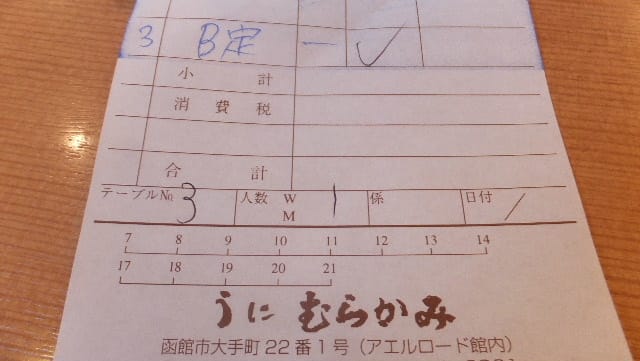 3 B定 一 ✓
小計
消費税
合計
テーブルNo. 3 人数 W M 1 係 日付 /
7 8 9 10 11 12 13 14
17 18 19 20 21
うに むらかみ
函館市大手町22番1号（アエルロード館内）